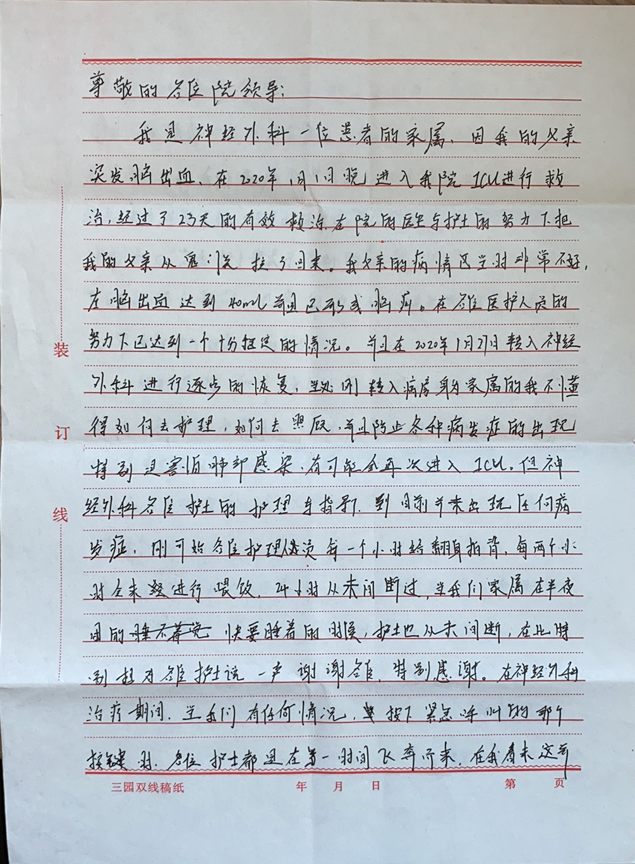 尊敬的各位院领导：
我是神经外科一位患者的家属，因我的父亲
突发脑出血，在2020年1月1日晚进入我院ICU进行救
治，经过了23天的有效救治在院的医生与护士的努力下把
我的父亲从死门关拉了回来。我父亲的病情当时非常不好，
左脑出血达到40ml并且已形成脑疝。在各位医护人员的
努力下已达到一个十分稳定的情况。并且在2020年1月21日转入神经
外科进行逐步的恢复，刚转入病房身为家属的我不懂
得如何去护理，如何去照顾，并且防止各种病发症的出现
特别是害怕肺部感染，有可能会再次进入ICU。但神
经外科各位护士的护理与指导，到目前并未出现任何病
发症，刚开始各位护理人员每一个小时给翻身拍背，每两个小
时会来进行喂饭，24小时从未间断过，当我们家属在半夜
困的快要睡着的时候，护士也从未间断，在此特
别想对各位护士说一声谢谢各位，特别感谢。在神经外科
治疗期间，当我们有任何情况，按下紧急呼叫的那个
按键时，各位护士都是在第一时间飞奔而来，在我看来这并
装
订
线
三园双线稿纸 年 月 日 第 页